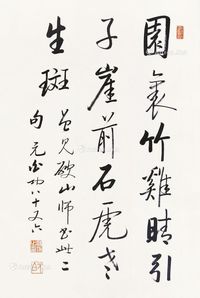 園裏竹雞晴引
子崖前石虎老
生斑 曾見破山師書此二
句 元白功八十又六